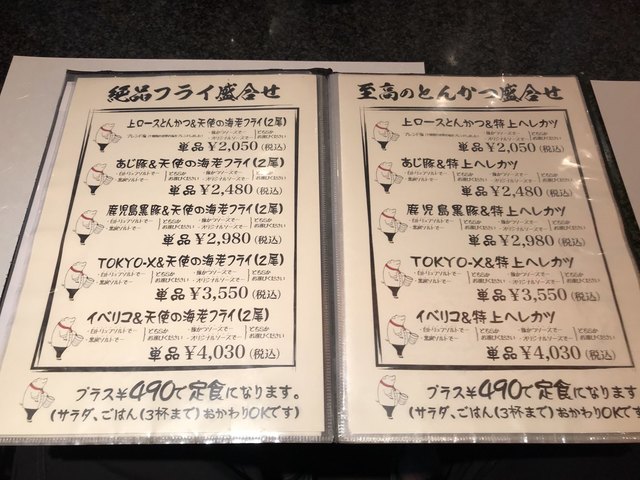 絶品フライ盛合せ
上ロースとんかつ&天使の海老フライ(2尾)
単品 ¥2,050(税込)
あじ豚&天使の海老フライ(2尾)
単品 ¥2,480(税込)
鹿児島黒豚&天使の海老フライ(2尾)
単品 ¥2,980(税込)
TOKYO-X&天使の海老フライ(2尾)
単品 ¥3,550(税込)
イベリコ&天使の海老フライ(2尾)
単品 ¥4,030(税込)
プラス¥490で定食になります。
(サラダ、ごはん(3杯まで)おかわりOKです)
至高のとんかつ盛合せ
上ロースとんかつ&特上ヘレカツ
単品 ¥2,050(税込)
あじ豚&特上ヘレカツ
単品 ¥2,480(税込)
鹿児島黒豚&特上ヘレカツ
単品 ¥2,980(税込)
TOKYO-X&特上ヘレカツ
単品 ¥3,550(税込)
イベリコ&特上ヘレカツ
単品 ¥4,030(税込)
プラス¥490で定食になります。
(サラダ、ごはん(3杯まで)おかわりOKです)